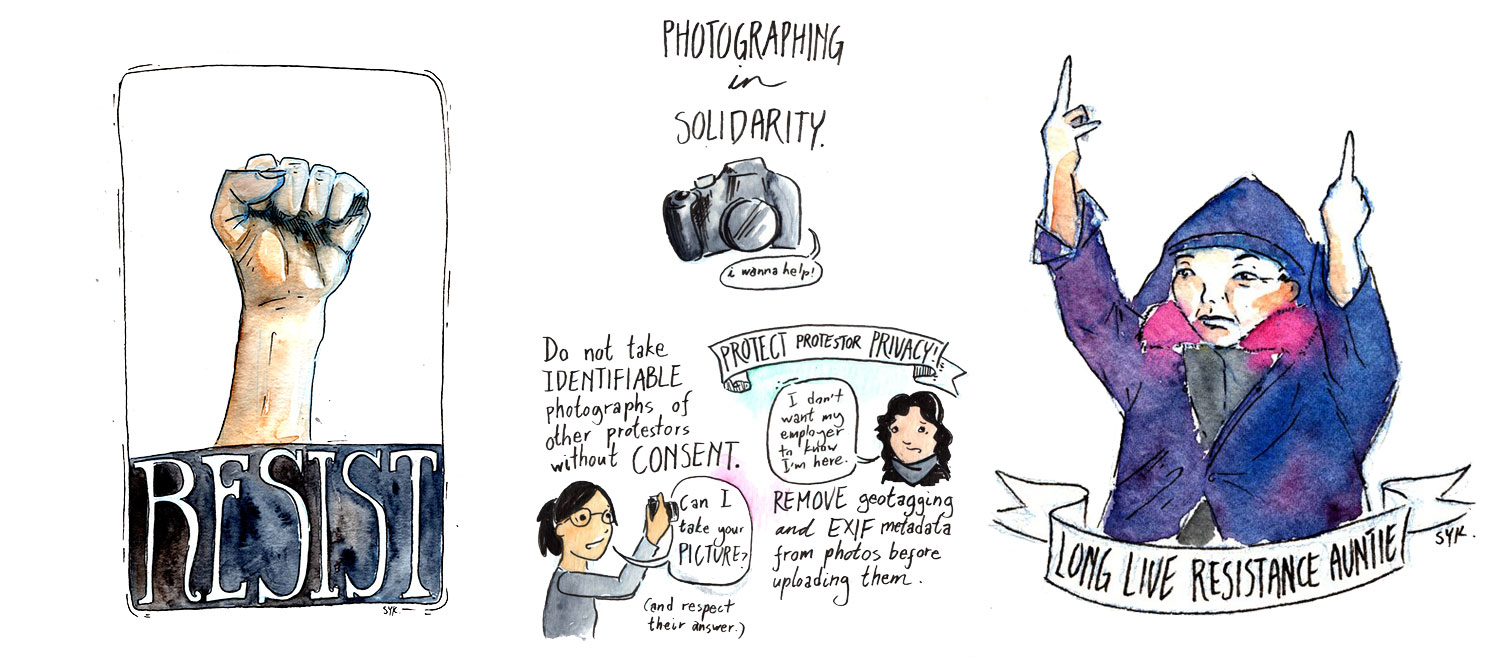 RESIST
SYK.
PHOTOGRAPHING
in
SOLIDARITY.
i wanna help!
Do not take
IDENTIFIABLE
photographs of
other protestors
without CONSENT.
Can I
take your
PICTURE?
(and respect
their answer.)
PROTECT PROTESTOR PRIVACY!
I don't
want my
employer
to know
I'm here.
REMOVE geotagging
and EXIF metadata
from photos before
uploading them.
LONG LIVE RESISTANCE AUNTIE
SYK.